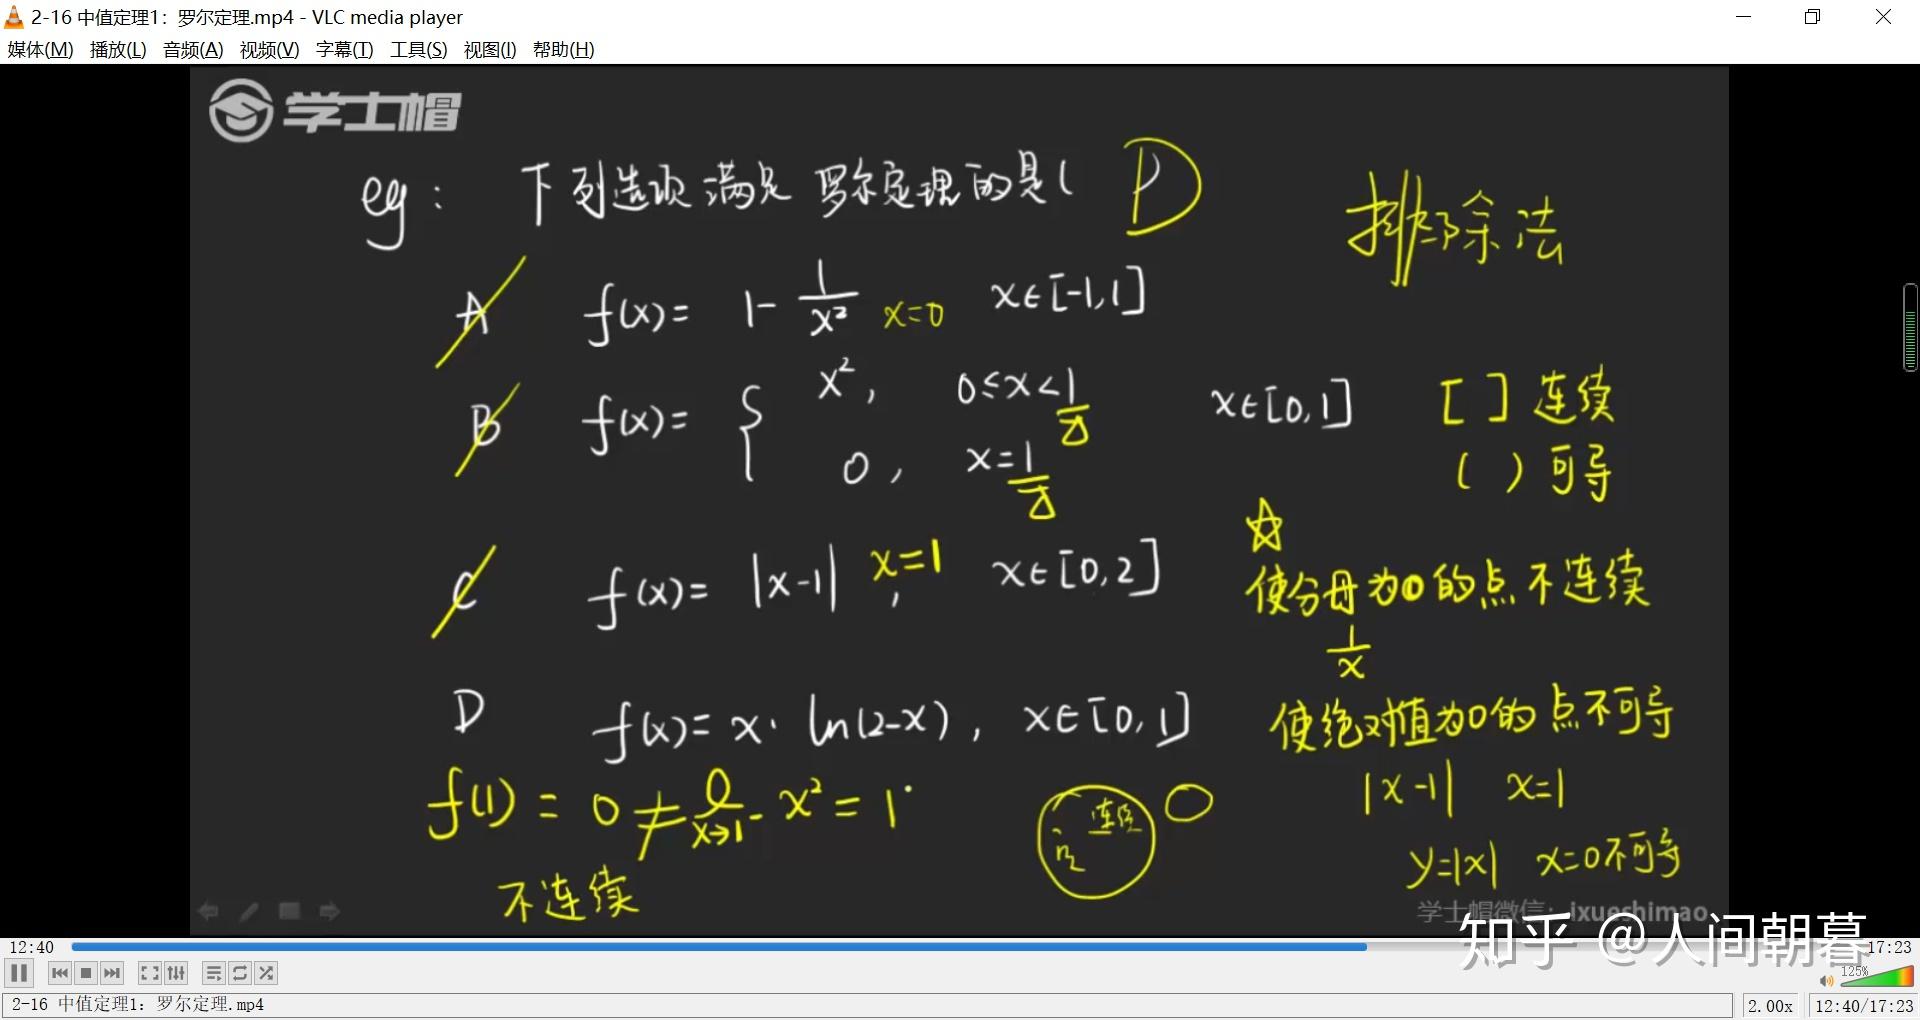 2-16 中值定理1：罗尔定理.mp4 - VLC media player
媒体(M) 播放(L) 音频(A) 视频(V) 字幕(T) 工具(S) 视图(I) 帮助(H)
学士帽
eg： 下列选项满足罗尔定理的是( D
排除法
A f(x)= 1- 1/x² x=0 x∈[-1,1]
B f(x)= { x², 0≤x<1 x∈[0,1]
0, x=1
[ ] 连续
( ) 可导
C f(x)= |x-1| x=1 , x∈[0,2]
☆
使分母为0的点不连续
1/x
D f(x)= x·ln(2-x), x∈[0,1]
使绝对值为0的点不可导
|x-1| x=1
f(1) = 0 ≠ x→1- x² = 1
连续
y=|x| x=0不可导
不连续
学士帽微信：ixueshimao
知乎 @人间朝暮
12:40 17:23
125%
2-16 中值定理1：罗尔定理.mp4 2.00x 12:40/17:23